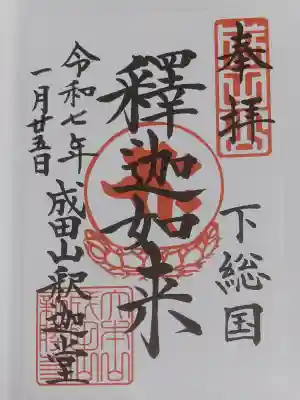 奉拝
下総国
釋迦如来
令和七年
一月廿五日
成田山釈迦堂